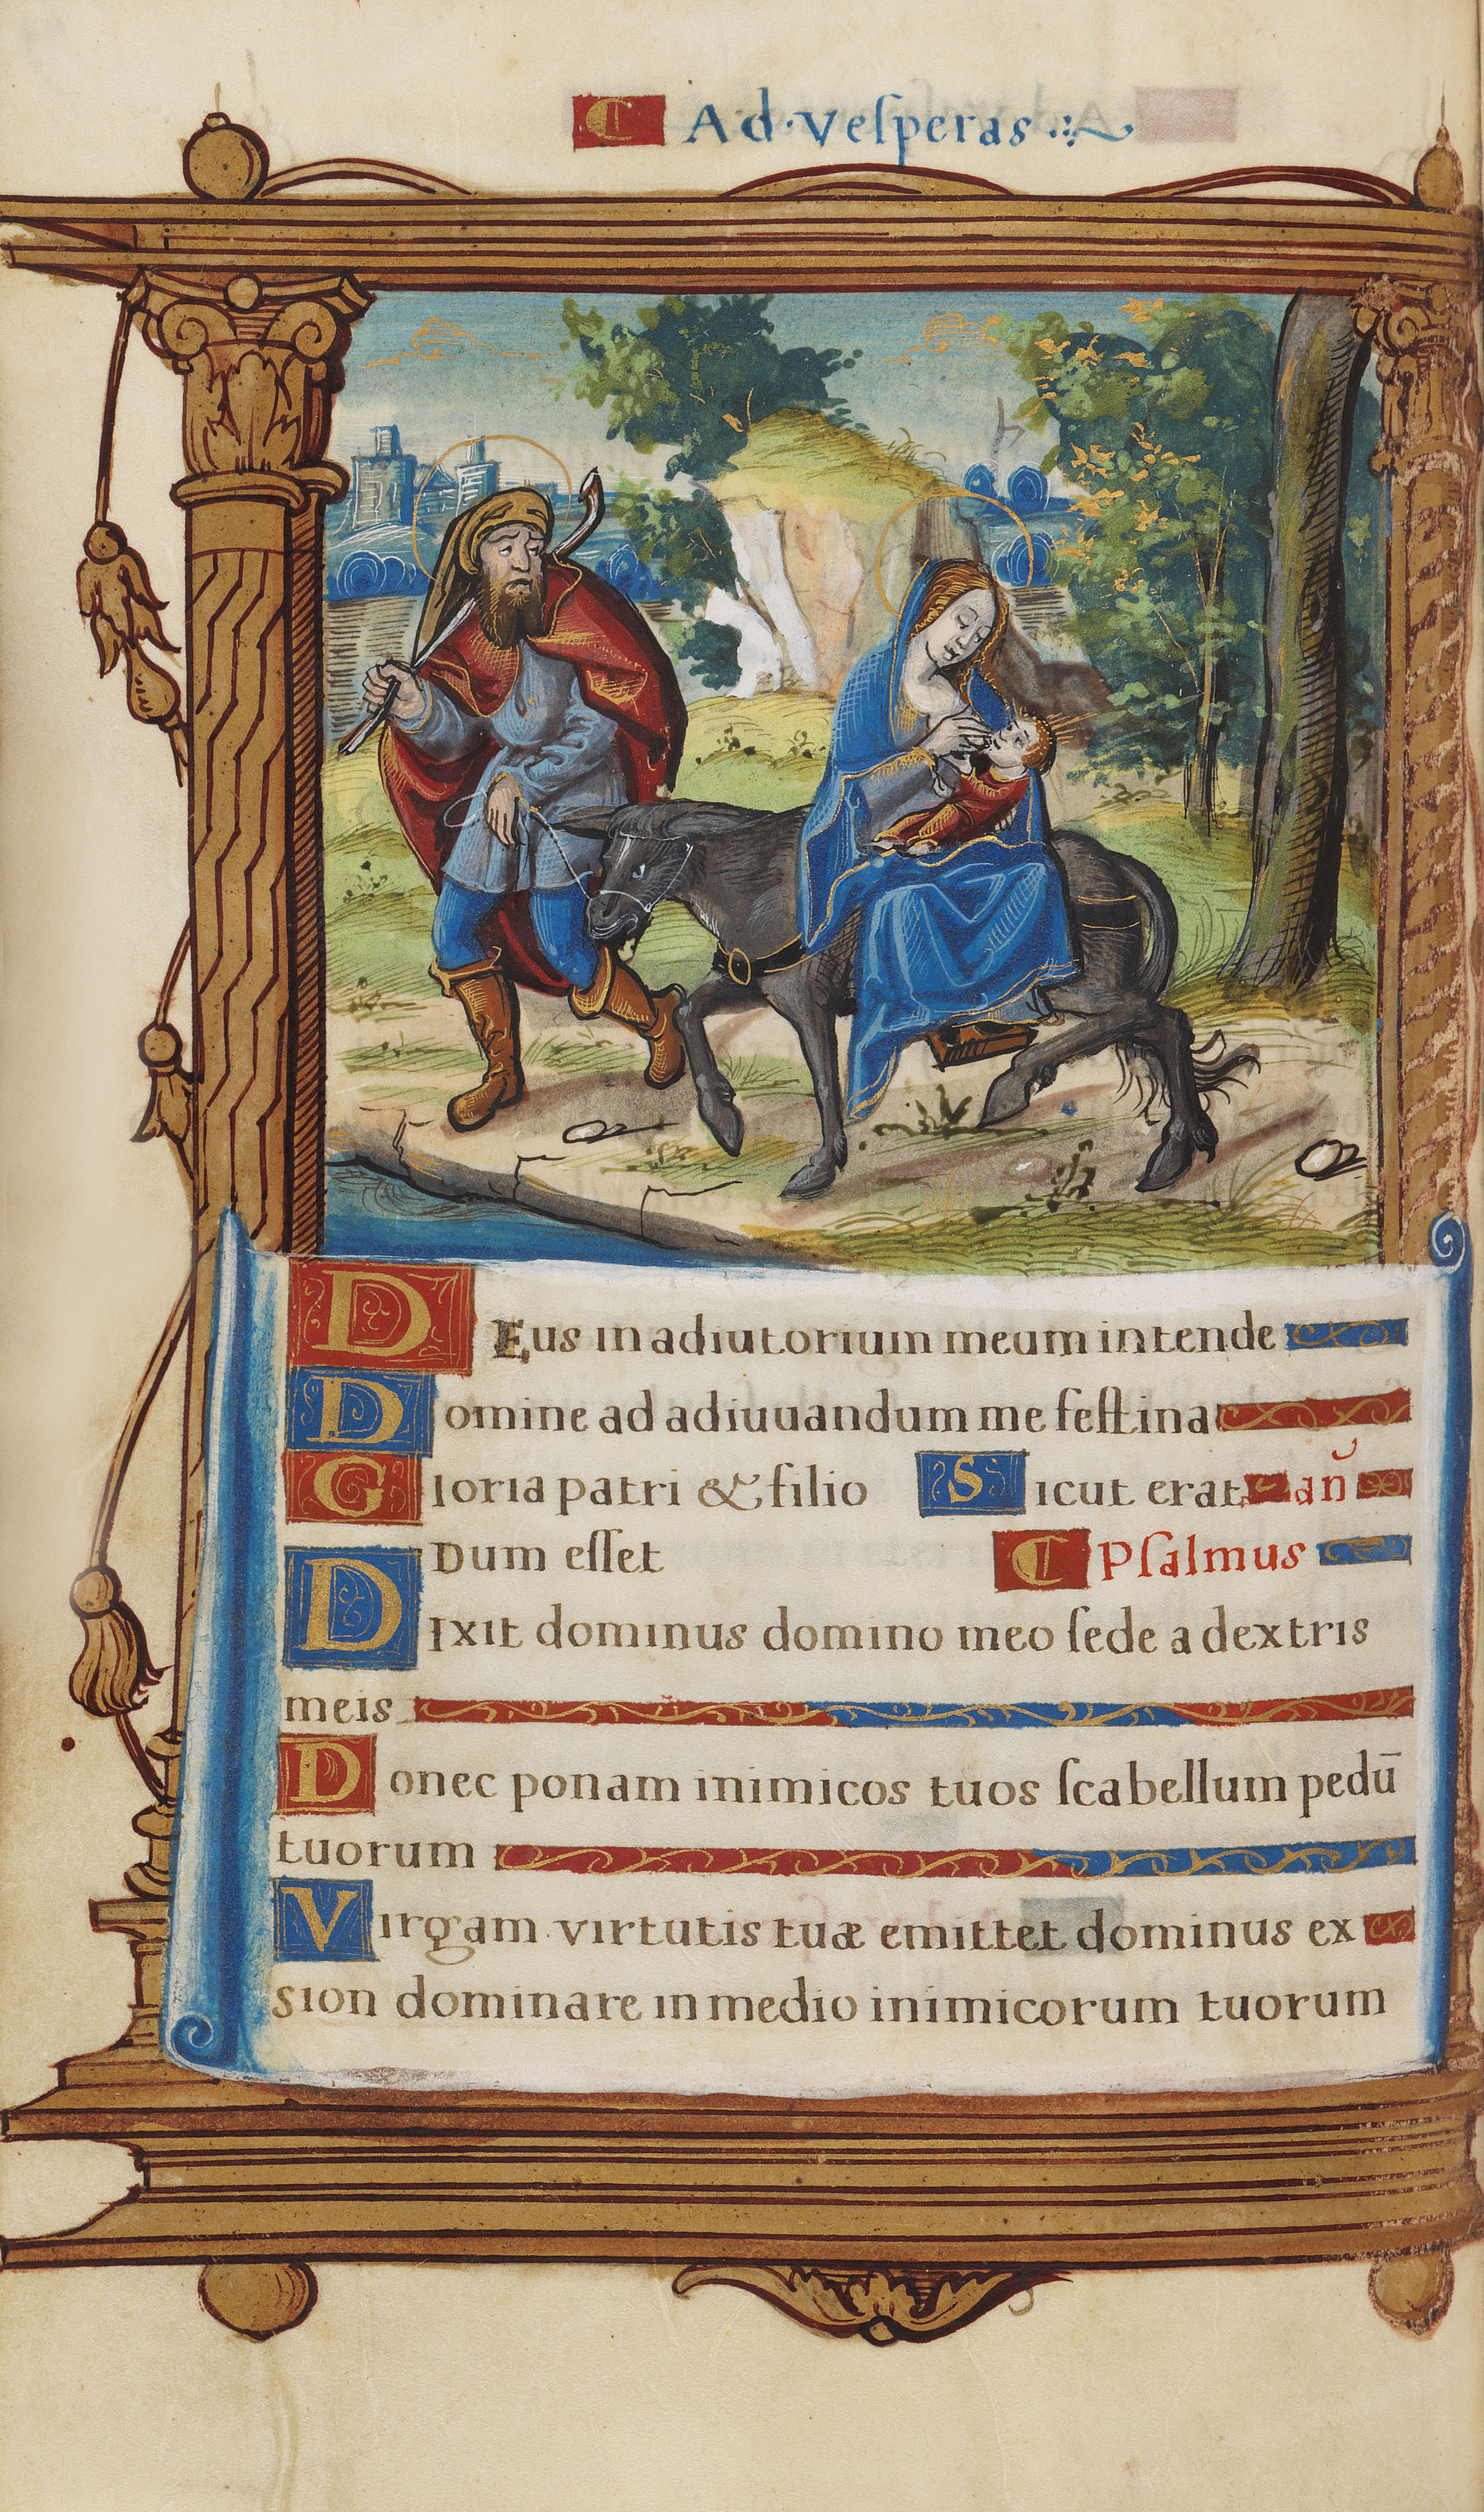 Ad·Veſperas
DEus in adiutorium meum intende
Domine ad adiuuandum me feſtina
Gloria patri & filio Sicut erat an̄
Dum eſſet Pſalmus
Dixit dominus domino meo ſede a dextris
meis
Donec ponam inimicos tuos ſcabellum pedū
tuorum
Virgam virtutis tuæ emittet dominus ex
sion dominare in medio inimicorum tuorum